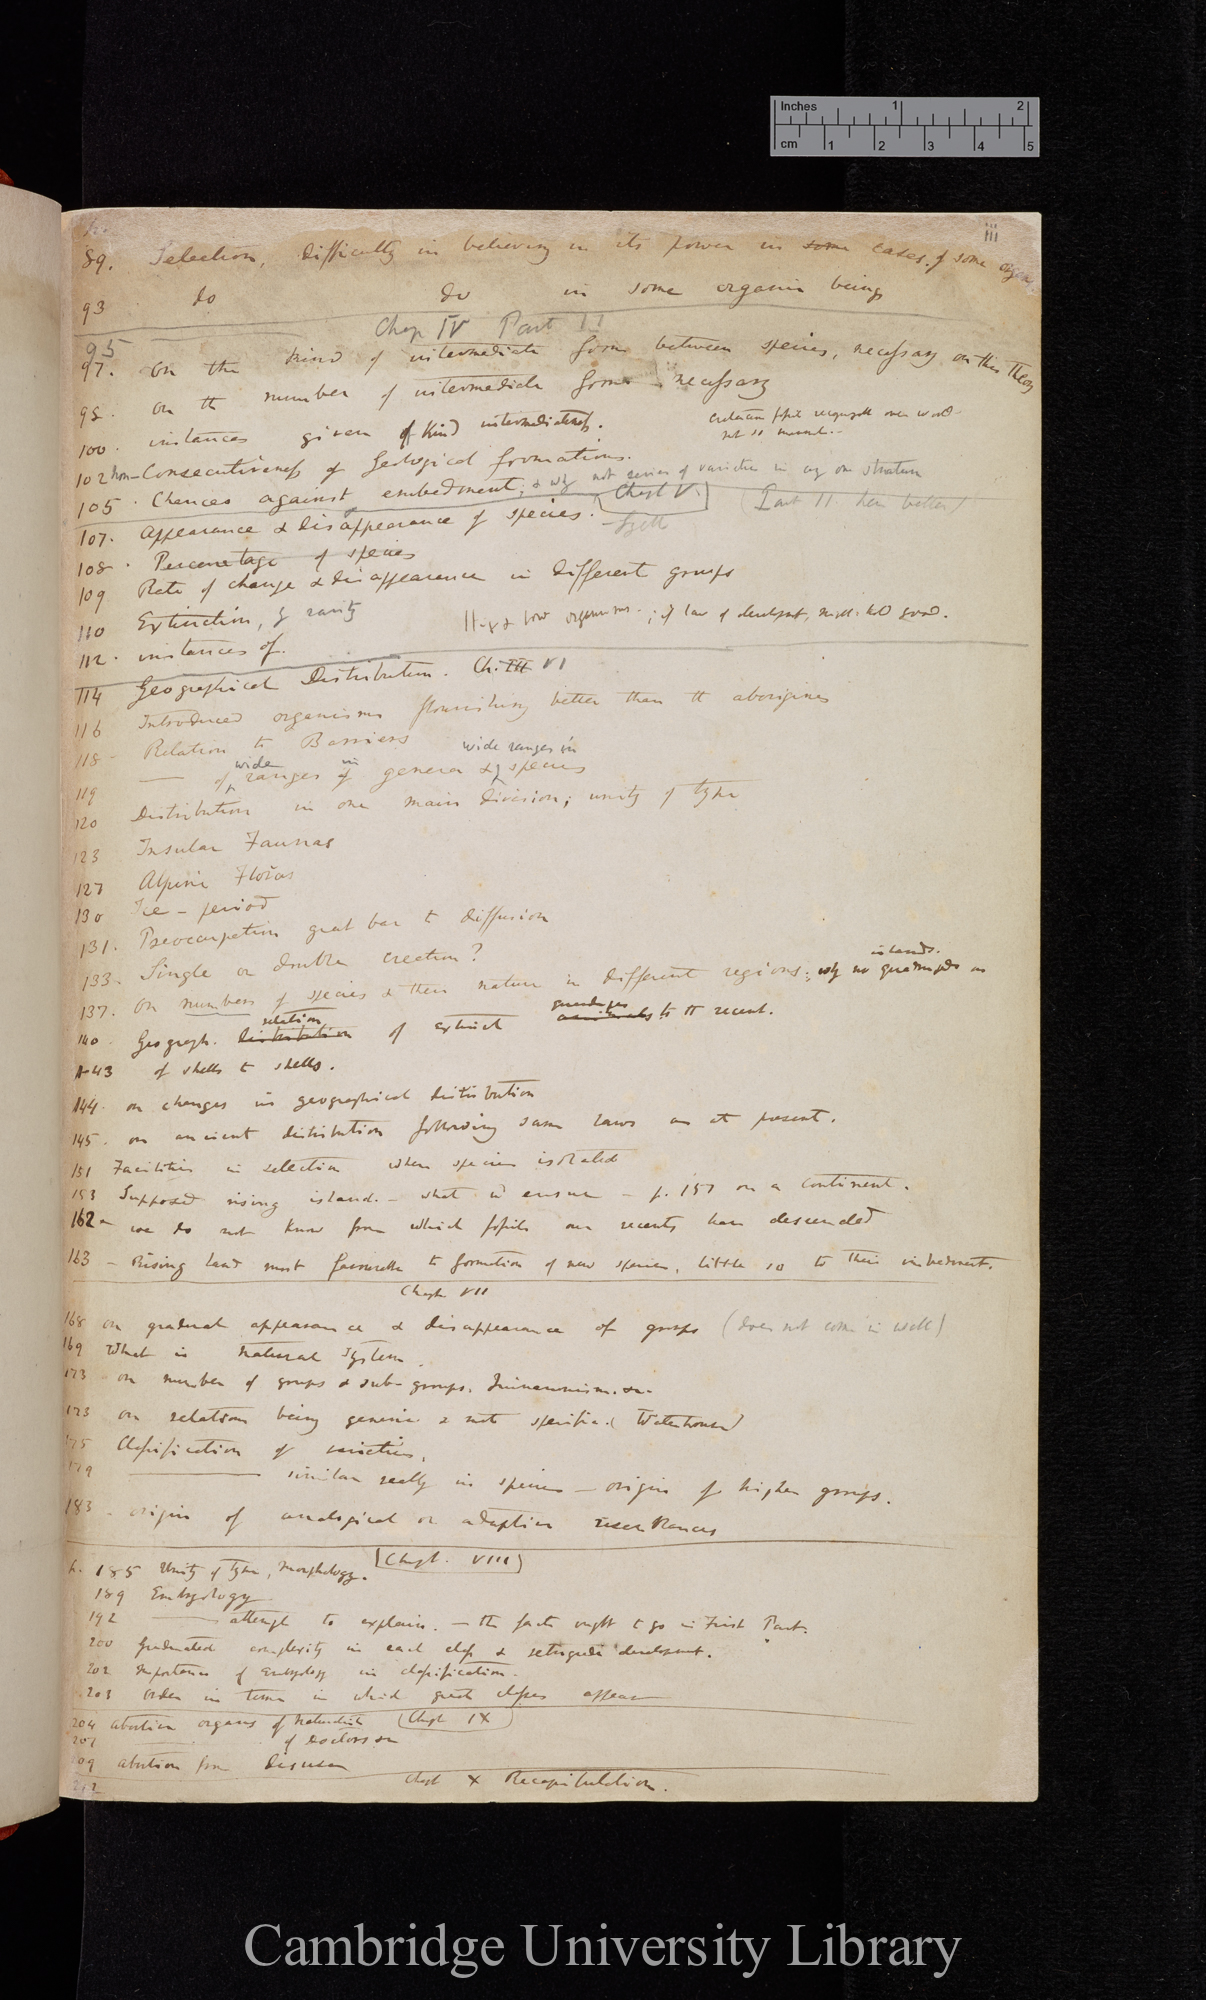 Inches 1 2
cm 1 2 3 4 5
iii
89. Selection, difficulty in believing in its power in some cases, of some organs
93 do do in some organic beings
95 Chap IV Part II
97. On the kind of intermediate forms between species, necessary on this theory
98. On the number of intermediate forms necessary
100. instances given of kind intermediateness.
102 Non-Consecutiveness of Geological formations.
105. Chances against embedment; & why not series of varieties in any one stratum
Chapt V. (Part II. here better)
107. Appearance & disappearance of species. Lyell
108. Percentage of species
109 Rate of change & disappearance in different groups
110 Extinction, & rarity High & low organisms.; if law of developt, might hold good.
112. instances of.
114 Geographical Distribution. Ch. III VI
116 Introduced organisms flourishing better than the aborigines
118 Relation to Barriers
119 of wide ranges in genera & of species wide ranges in
120 Distribution in one main division; unity of type
123 Insular Faunas
127 Alpine Floras
130 Ice-period
131. Preoccupation great bar to diffusion
133. Single or double creation?
137. On numbers of species & their nature in different regions: why no quadrupeds on islands.
140 Geograph. distribution relation of extinct to the recent.
143 of shells to shells.
144. on changes in geographical distribution
145. on ancient distribution following same laws as at present.
151 Facilities in selection when species isolated
153 Supposed rising island.- what wd ensue - p. 157 on a continent.
162 - we do not know from which fossils our recents have descended
163 - Rising land most favourable to formation of new species, little so to their imbedment.
Chapt VII
168 on gradual appearance & disappearance of groups (does not come in well)
169 What is natural System.
173 on number of groups & sub-groups, Quinarianism. &c.
173 on relation being generic & not specific. (Waterhouse)
175 Classification of varieties.
179 similar really in species - origin of higher groups.
183 - origin of analogical or adaptive resemblances
p. 185 Unity of type, morphology. Chapt. VIII
189 Embryology
192 attempt to explain. - the facts ought to go in First Part.
200 graduated complexity in each class & retrograde developmt.
202 importance of Embryology in classification.
203 order in time in which great classes appear
204 abortive organs of Naturalists Chapt IX
207 of Doctors &c
209 abortion from disuse
212 Chapt X Recapitulation.
Cambridge University Library